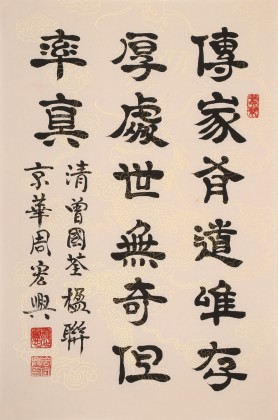 傳家有道唯存
厚處世無奇但
率真
清曾國荃楹聯
京華周宏興